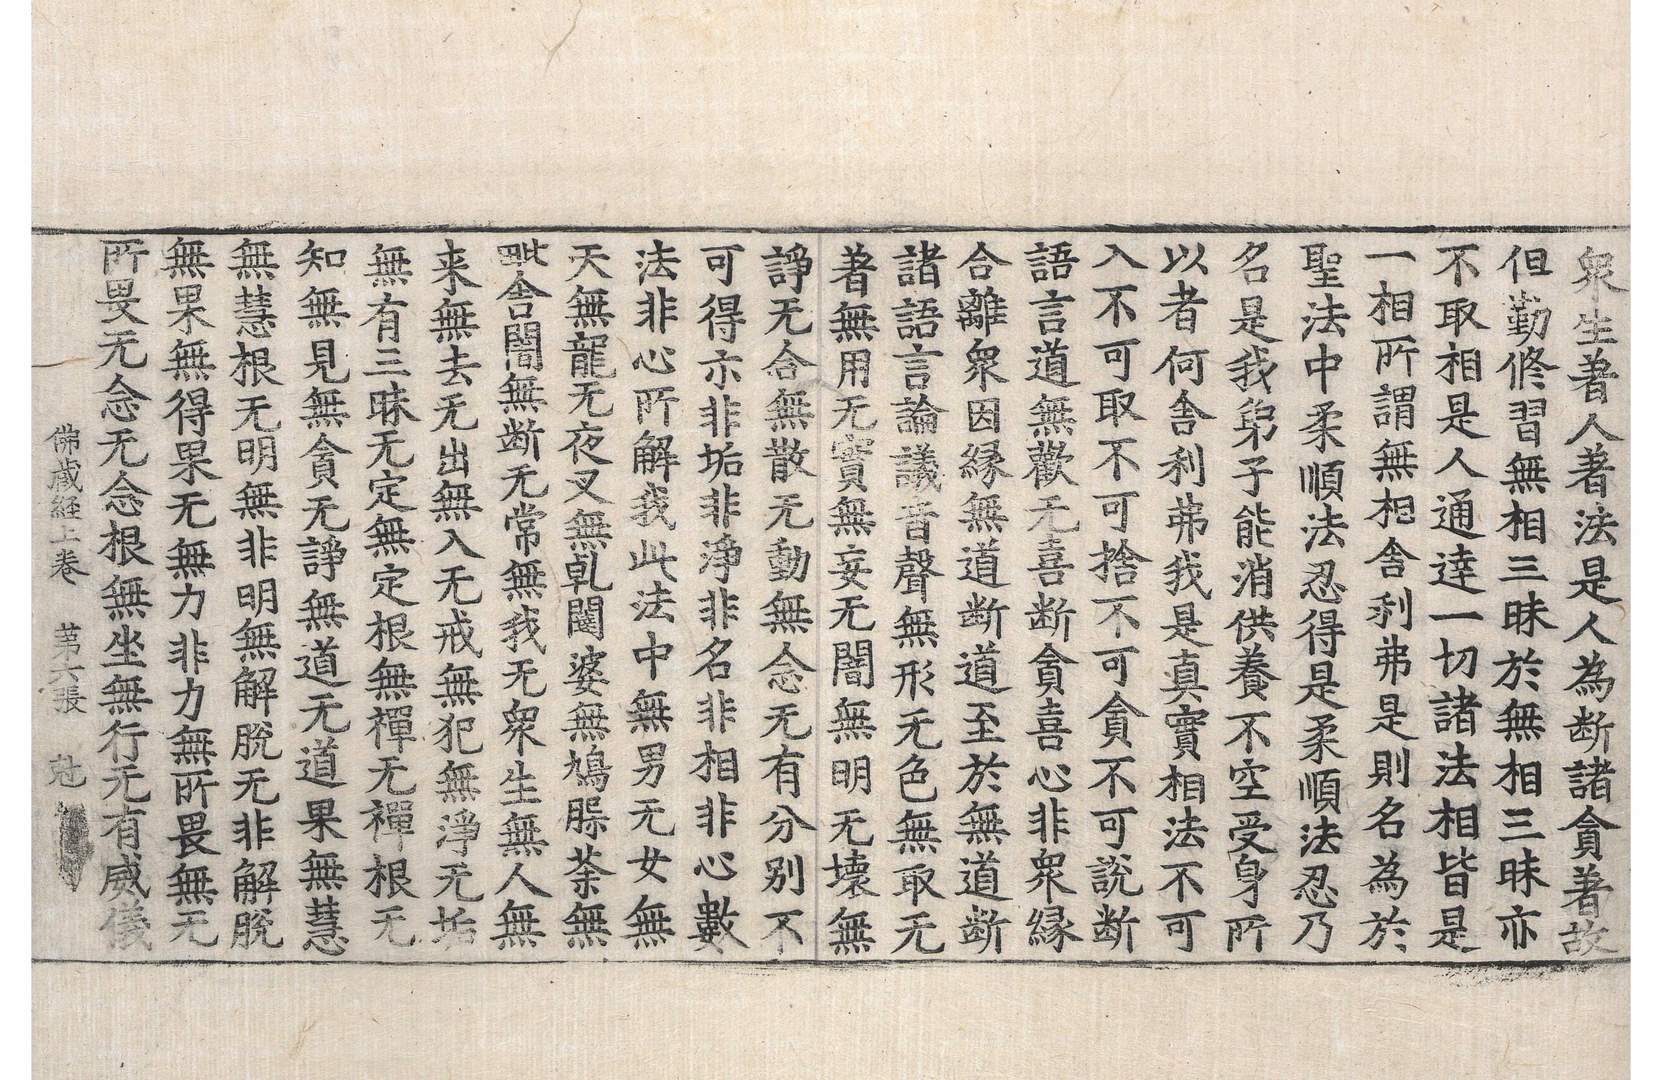 衆生著人著法是人為断諸貪著故
但勤修習無相三昧於無相三昧亦
不取相是人通達一切諸法相皆是
一相所謂無相舎利弗是則名為於
聖法中柔順法忍得是柔順法忍乃
名是我弟子能消供養不空受身所
以者何舎利弗我是真實相法不可
入不可取不可捨不可貪不可說断
語言道無歡无喜断貪喜心非衆縁
合離衆因縁無道断道至於無道断
諸語言論議音聲無形无色無取无
著無用无實無妄无闇無明无壊無
諍无合無散无動無念无有分別不
可得示非垢非淨非名非相非心數
法非心所解我此法中無男无女無
天無龍无夜叉無乹闥婆無鳩牃荼無
毗舎闍無断无常無我无衆生無人無
来無去无出無入无戒無犯無淨无垢
無有三昧无定無定根無禪无禪根无
知無見無貪无諍無道无道果無慧
無慧根无明無非明無解脫无非解脫
無果無得果无無力非力無所畏無无
所畏无念无念根無坐無行无有威儀
佛蔵経上巻 苐六張 尅